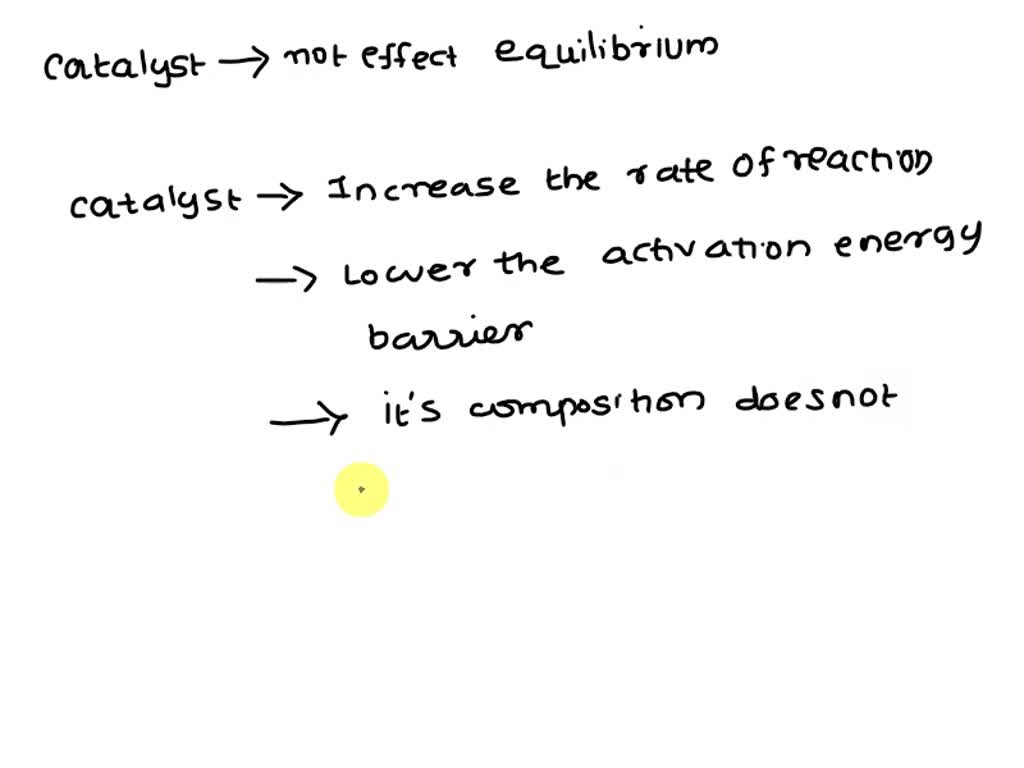 catalyst → not effect equilibrium
catalyst → Increase the rate of reaction
→ Lower the activation energy
barrier
→ it's composition doesnot